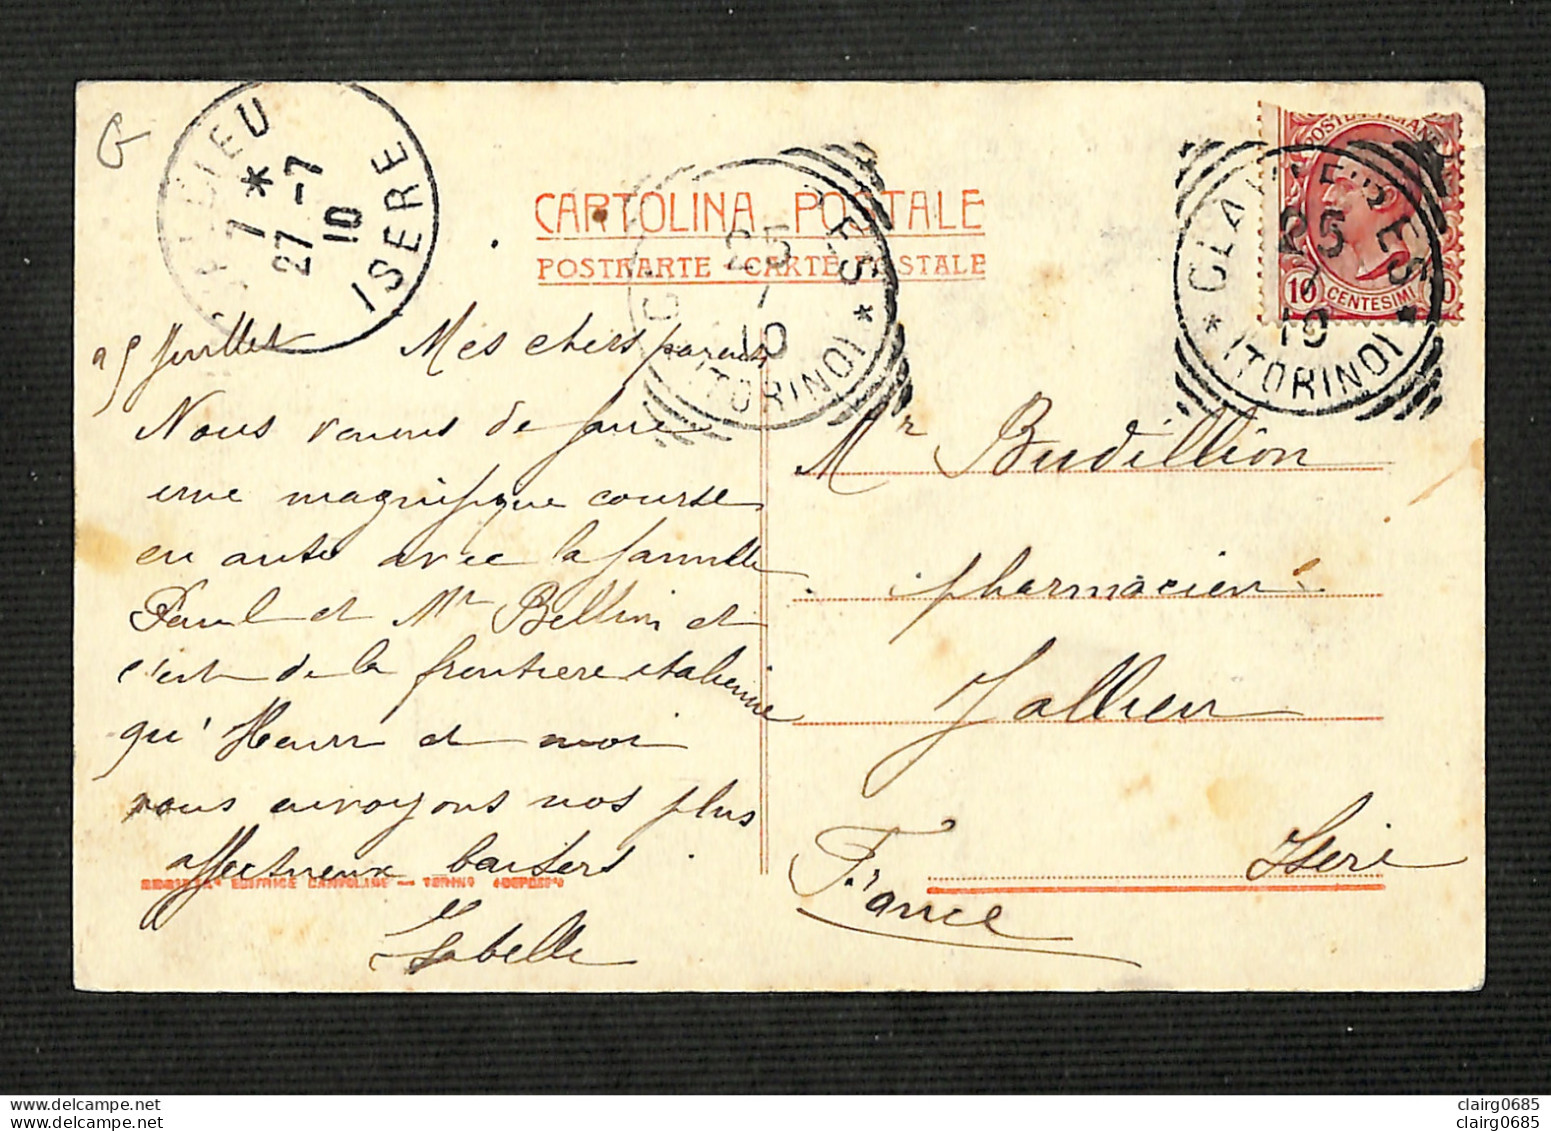 G
JALLIEU
ISERE
7 *
27 -7
10
CARTOLINA POSTALE
POSTKARTE - CARTE POSTALE
25
10
(TORINO) *
POSTE ITALIANE
10 CENTESIMI 10
* CLAVIERES *
25
7
10
(TORINO)
25 Juillet Mes chers parents
Nous venons de faire
une magnifique course
en auto avec la famille
Paul et Mr Bellin et
c'est de la frontière italienne
qu'Henri et moi
vous envoyons nos plus
affectueux baisers
EDITRICE CARTOLINE — TORINO
Isabelle
Mr Budillion
pharmacien
Jallieu
Isère
France
clairg0685
clairg0685
clairg0685
clairg0685